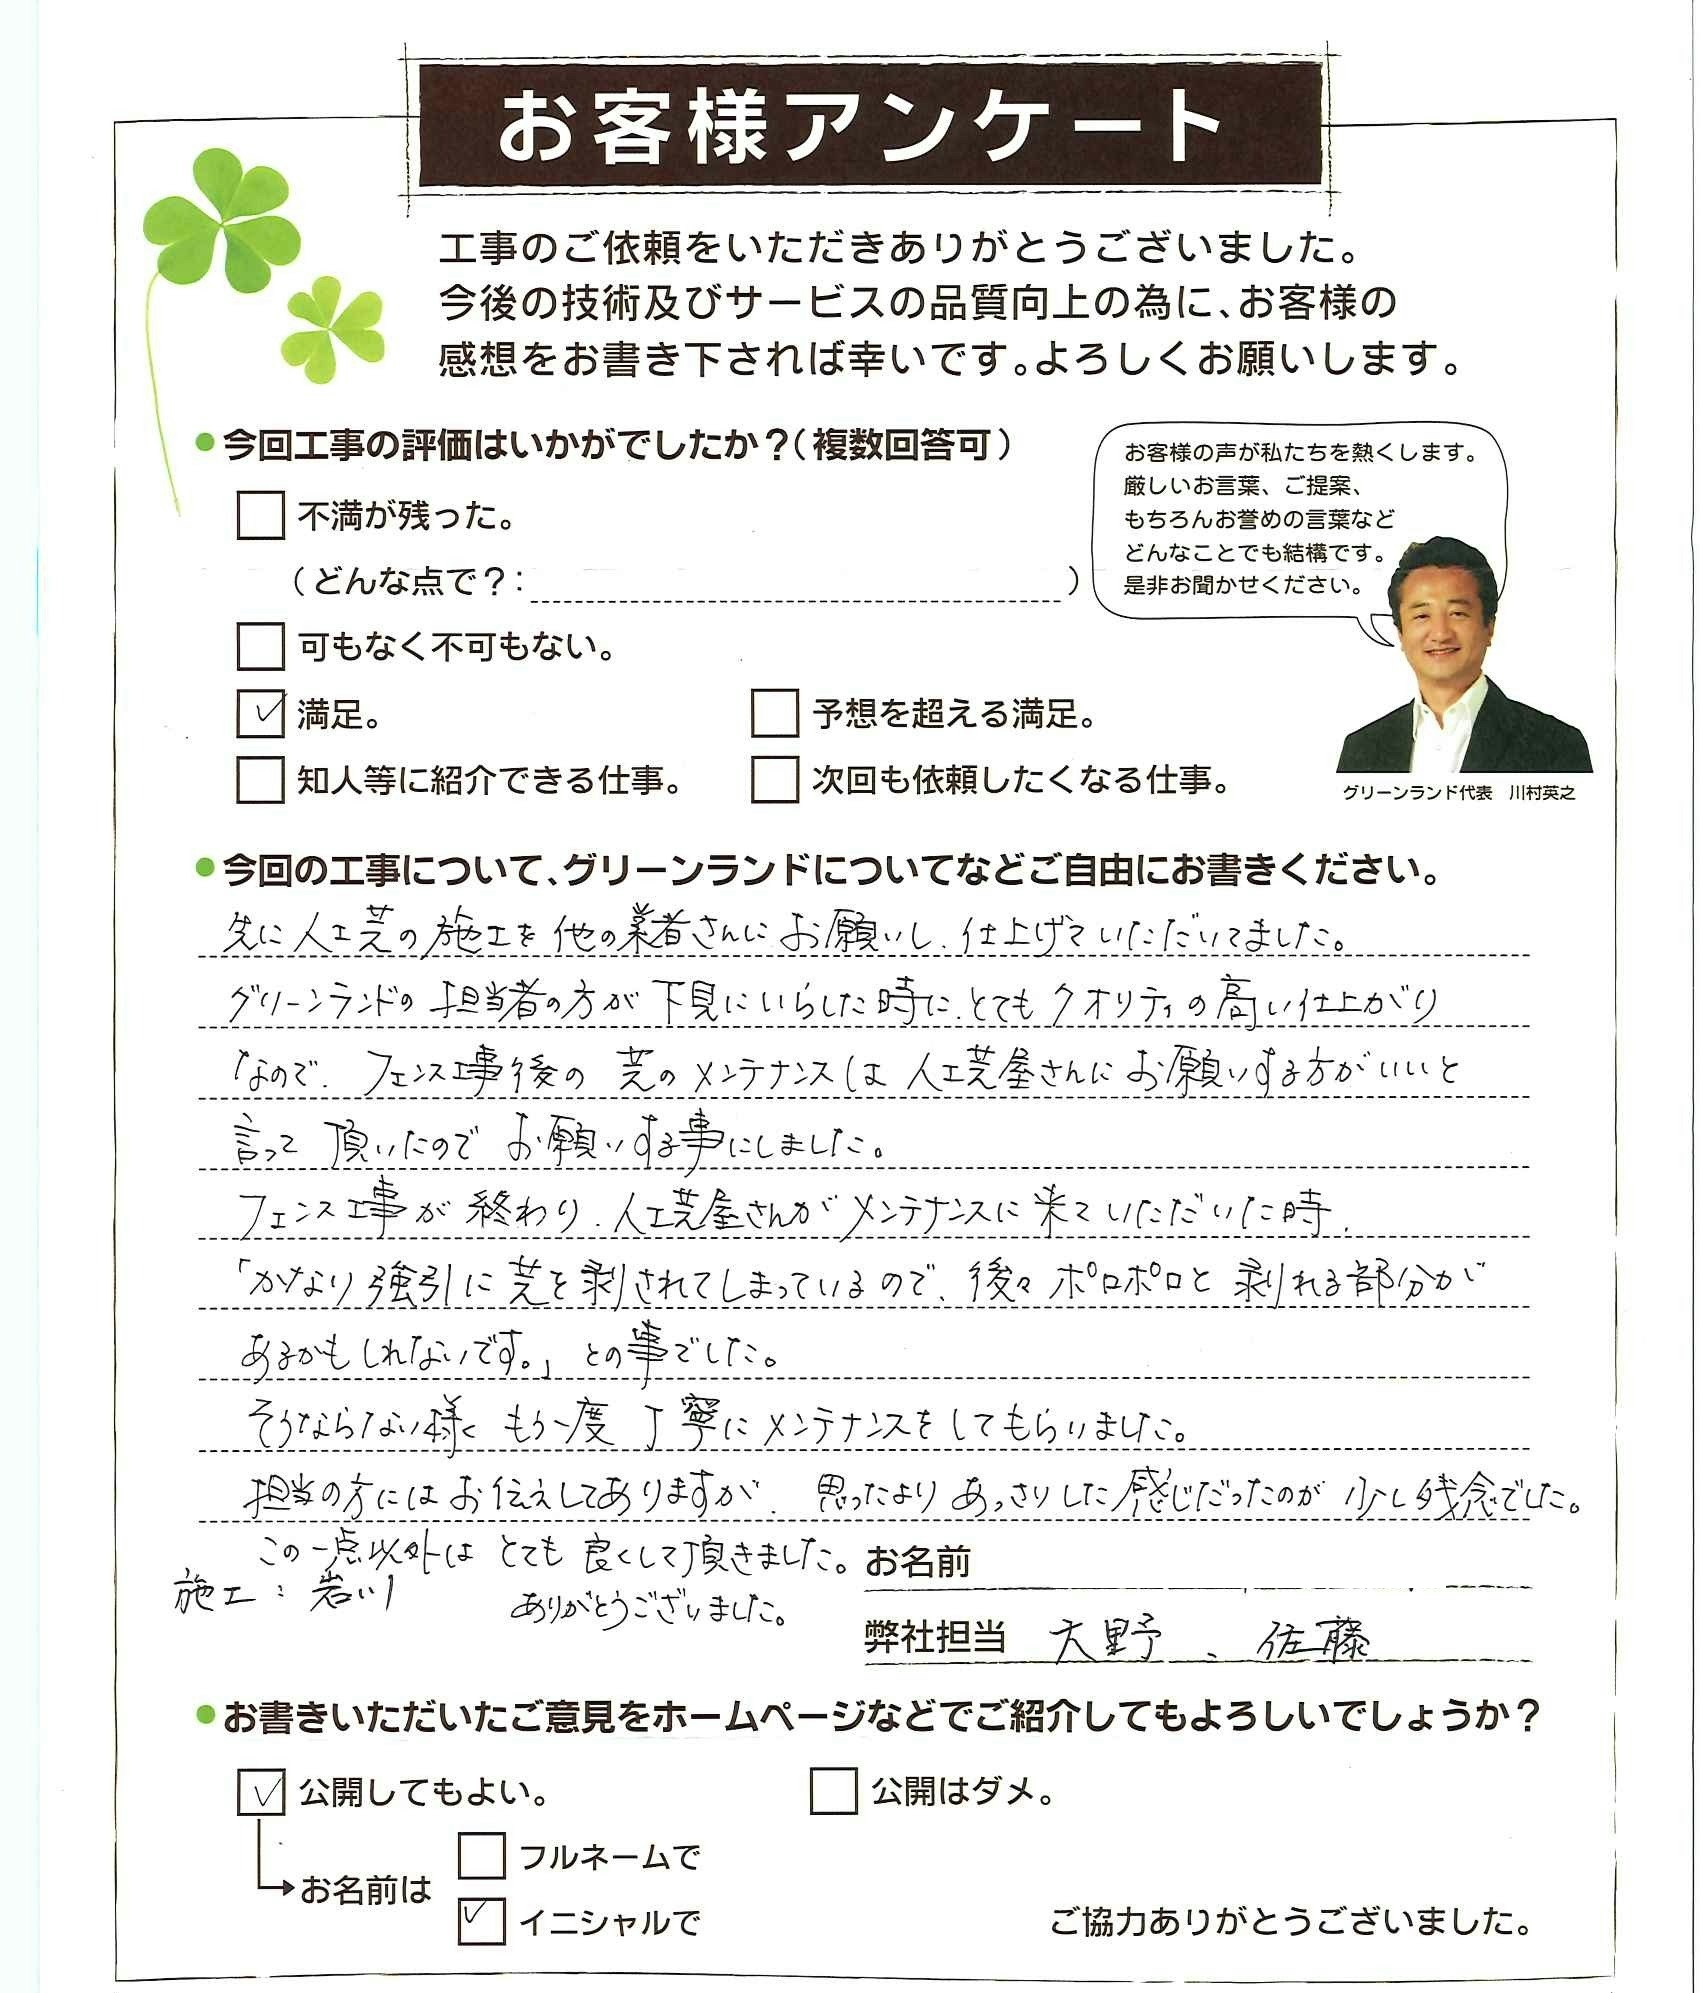 お客様アンケート
工事のご依頼をいただきありがとうございました。
今後の技術及びサービスの品質向上の為に、お客様の
感想をお書き下されば幸いです。よろしくお願いします。
●今回工事の評価はいかがでしたか？（複数回答可）
不満が残った。
（どんな点で？：　　）
可もなく不可もない。
満足。
予想を超える満足。
知人等に紹介できる仕事。
次回も依頼したくなる仕事。
お客様の声が私たちを熱くします。
厳しいお言葉、ご提案、
もちろんお誉めの言葉など
どんなことでも結構です。
是非お聞かせください。
グリーンランド代表　川村英之
●今回の工事について、グリーンランドについてなどご自由にお書きください。
先に人工芝の施工を他の業者さんにお願いし、仕上げていただいてました。
グリーンランドの担当者の方が下見にいらした時に、とてもクオリティの高い仕上がり
なので、フェンス工事後の芝のメンテナンスは人工芝屋さんにお願いする方がいいと
言って頂いたのでお願いする事にしました。
フェンス工事が終わり、人工芝屋さんがメンテナンスに来ていただいた時、
「かなり強引に芝を剥されてしまっているので、後々ポロポロと剥れる部分が
あるかもしれないです。」との事でした。
そうならない様にもう一度丁寧にメンテナンスをしてもらいました。
担当の方にはお伝えしてありますが、思ったよりあっさりした感じだったのが少し残念でした。
この一点以外はとても良くして頂きました。
ありがとうございました。
施工：岩川
お名前
弊社担当　大野、佐藤
●お書きいただいたご意見をホームページなどでご紹介してもよろしいでしょうか？
公開してもよい。
公開はダメ。
お名前は
フルネームで
イニシャルで
ご協力ありがとうございました。